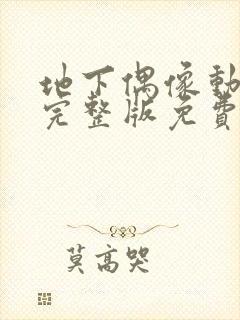 地下偶像動
完整版免費
莫高哭